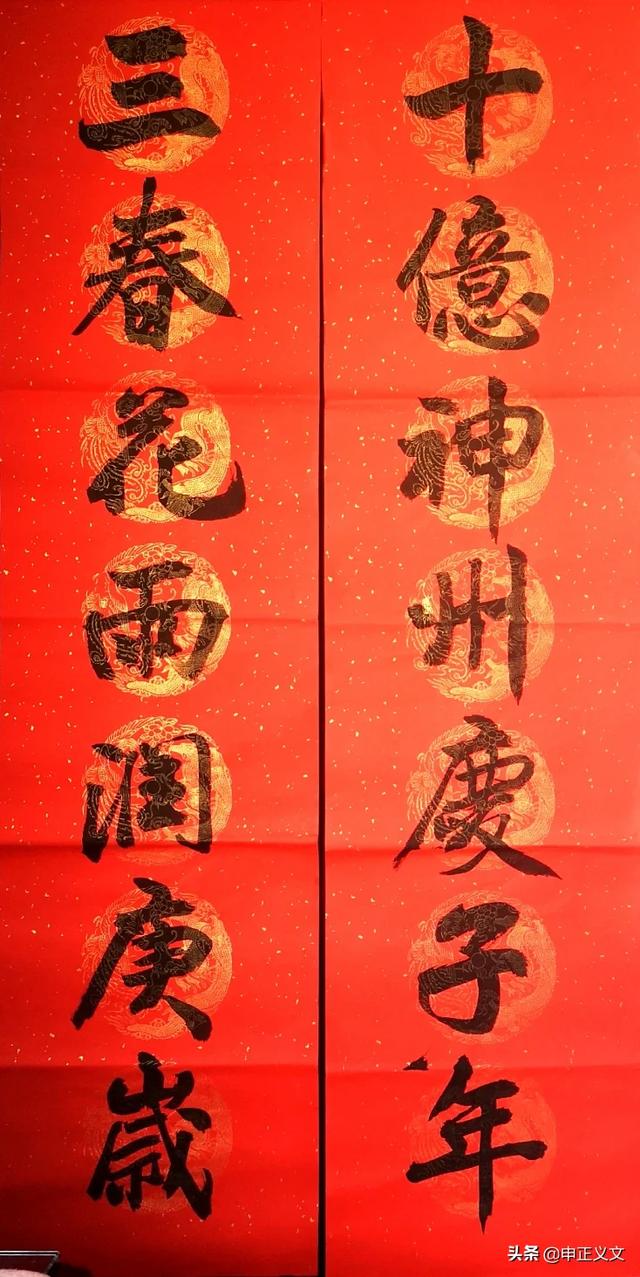 十億神州慶子年
三春花雨润庚歲
头条 @申正义文